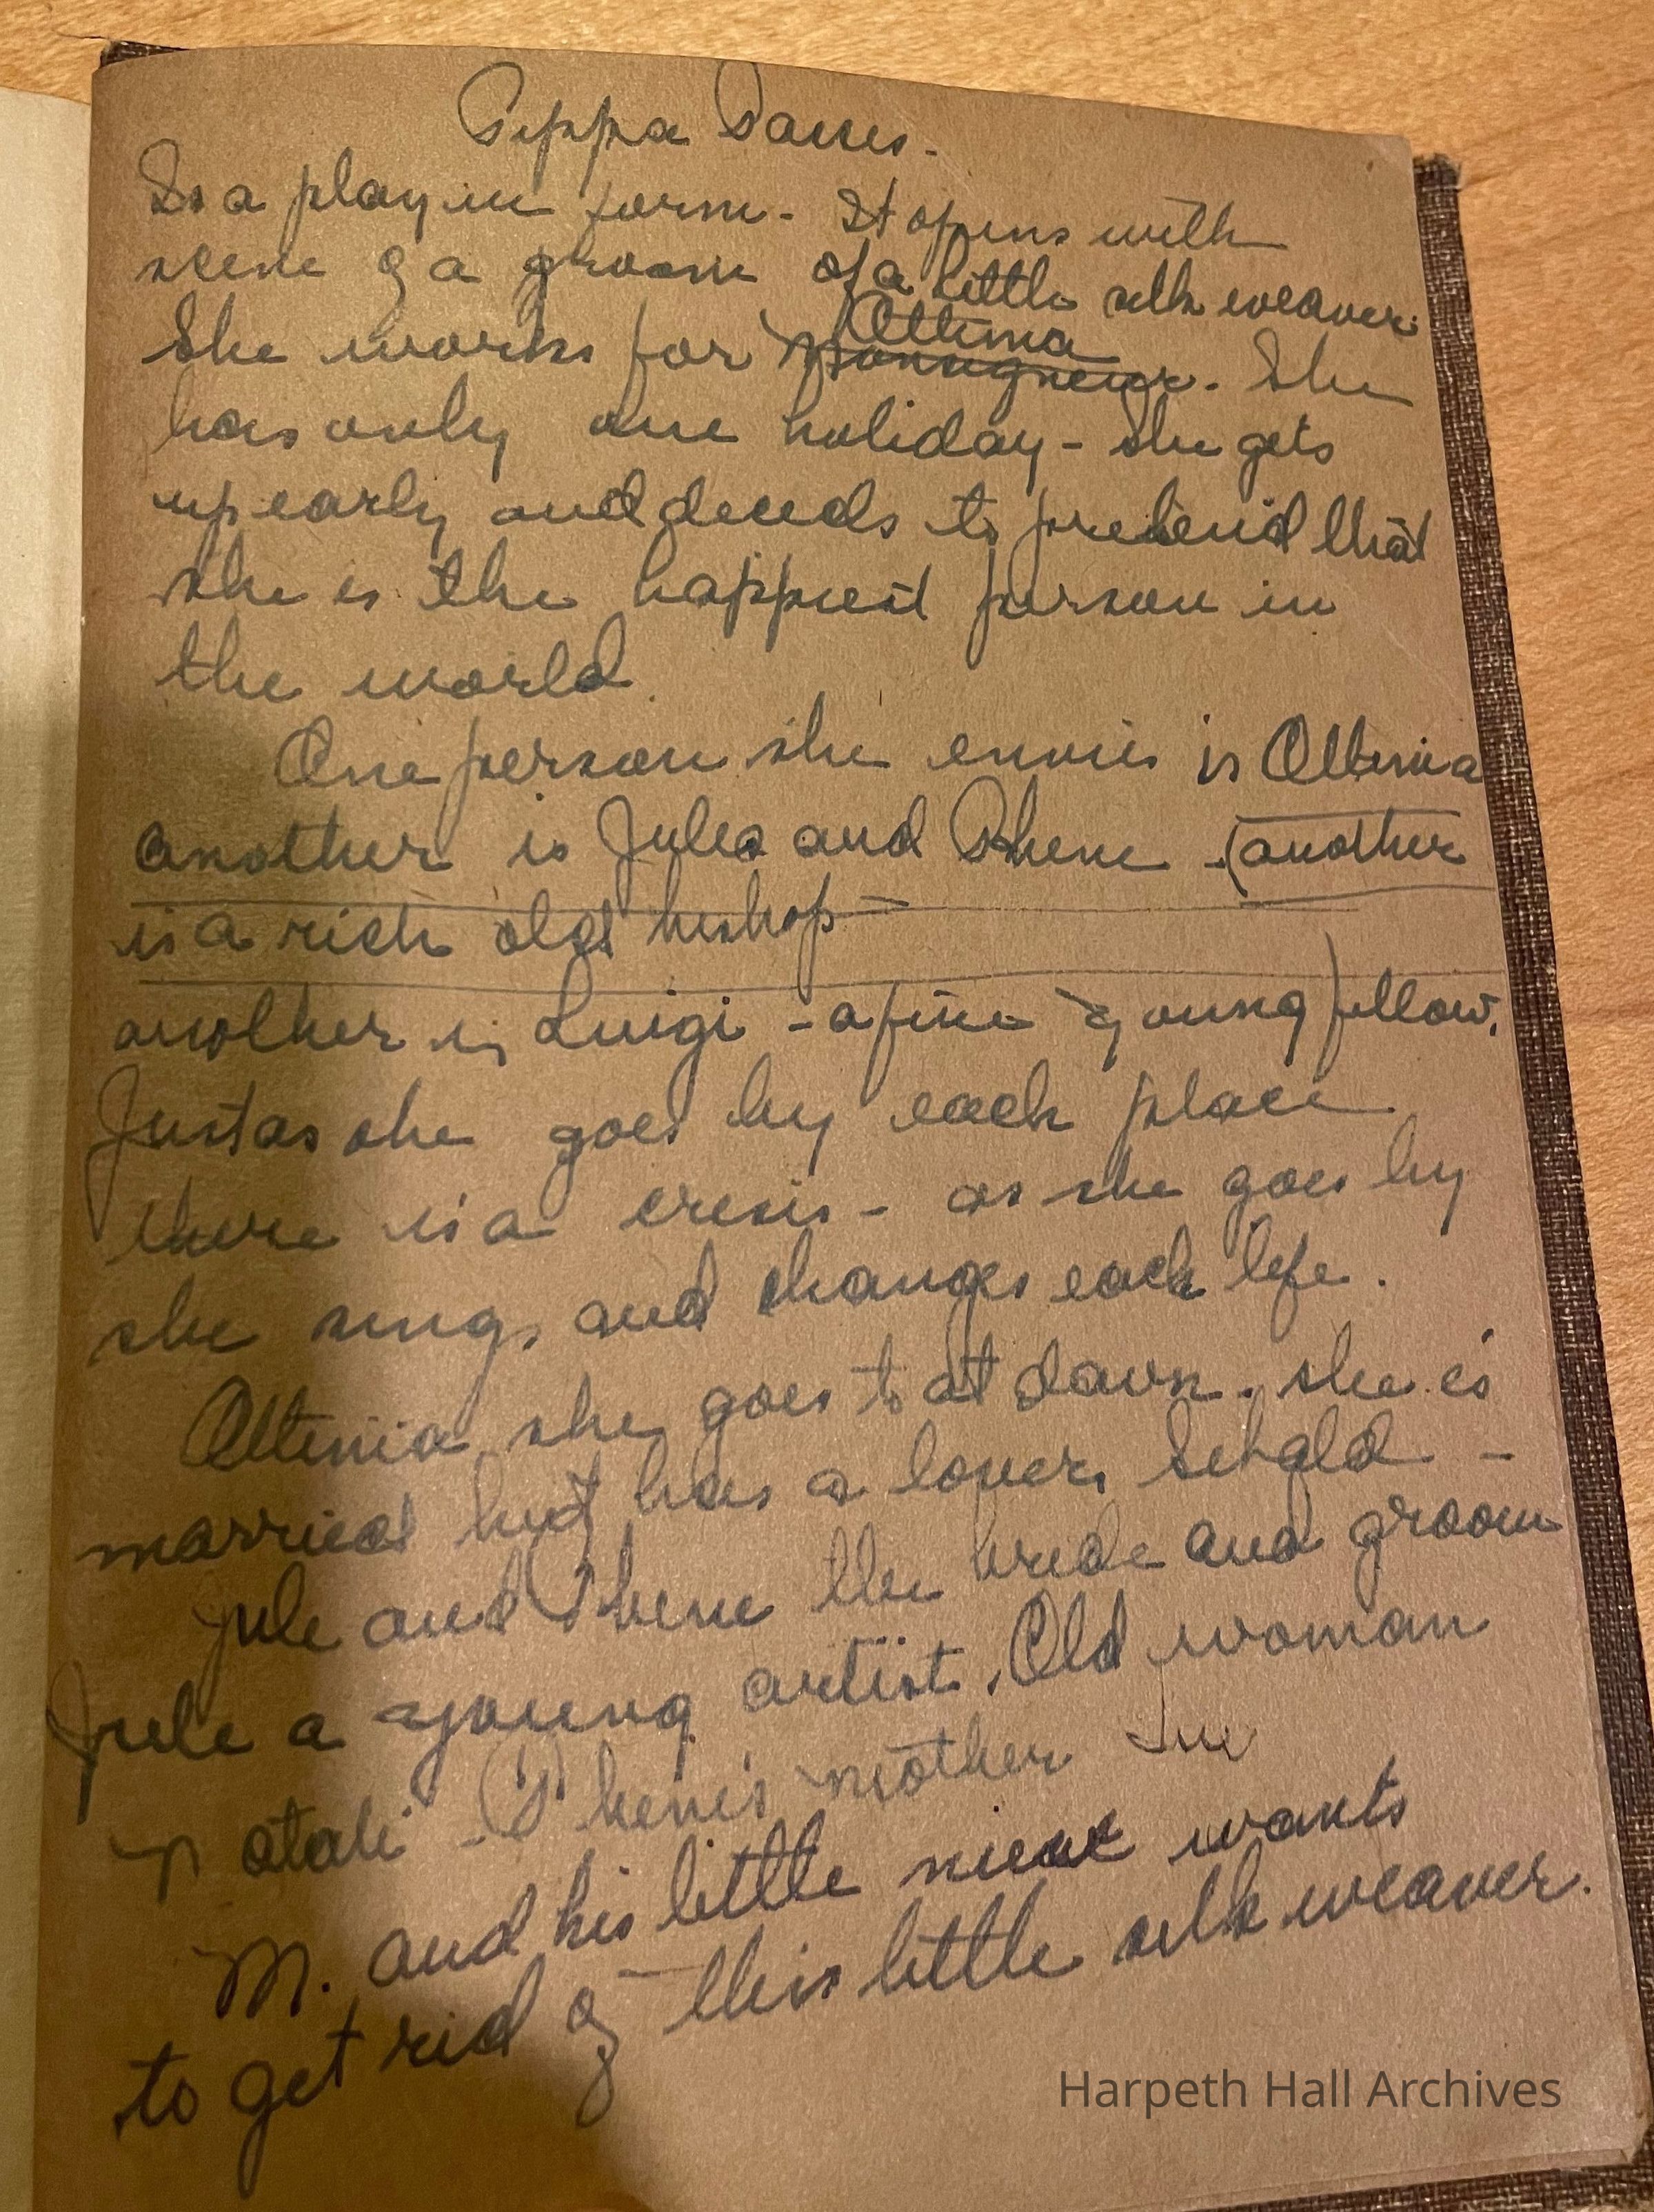 Pippa Passes.
Is a play in form - It opens with
scene of a groom of a little silk weaver
Ottima
She works for Monsigneur. She
has only one holiday - she gets
up early and deceds to pretend that
she is the happiest person in
the world.
One person she envies is Ottima
another is Jules and Phene - (another
is a rich old bishop -
another is Luigi - a fine young fellow.
Just as she goes by each place
there is a cresis - as she goes by
she sings and changes each life.
Ottima she goes to at dawn. she is
married but has a lover, Sebald -
Jule and Phene the bride and groom
Jule a young artist. Old woman
Natali - Phene's mother
M. and his little niece wants
to get rid of this little silk weaver.
Harpeth Hall Archives